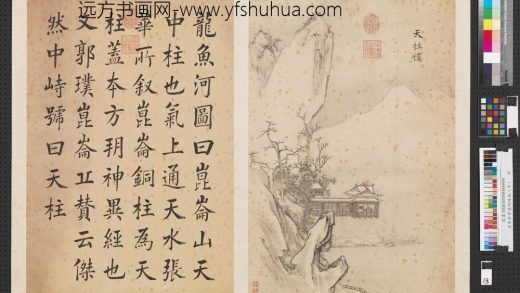 远方书画网-www.yfshuhua.com
龍魚河圖曰崑崙山天
中柱也氣上通天水張
華所叙崑崙銅柱為天
柱蓋本方玥神異經也
又郭璞崑崙丘贊云傑
然中峙號曰天柱
天柱樓